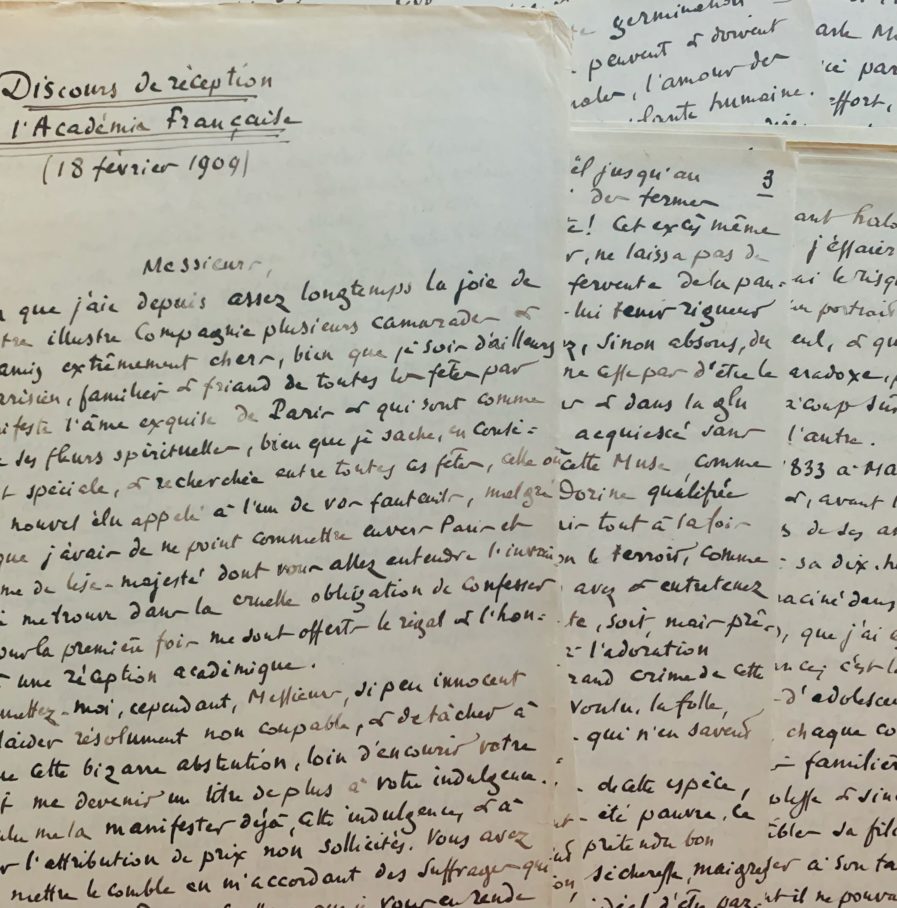 Discours de réception
l'Académie Française
(18 février 1909)
Messieurs,
que j'aie depuis assez longtemps la joie de
tre illustre Compagnie plusieurs camarades &
amis extrêmement chers, bien que je sois d'ailleurs
arisien, familier & friand de toutes les fêtes par
nifeste l'âme exquise de Paris & qui sont comme
ses fleurs spirituelles, bien que je sache, en consi=
t spéciale, & recherchée entre toutes ces fêtes, celle où
nouvel élu appelé à l'un de vos fauteuils, malgré
que j'avais de ne point commettre envers Paris et
me de lèse-majesté dont vous allez entendre l'invrai
me trouve dans la cruelle obligation de confesser
our la première fois me sont offerts le régal & l'hon=
une réception académique.
mettez-moi, cependant, Messieurs, si peu innocent
laider résolument non coupable, & de tâcher à
ue cette bizarre abstention, loin d'encourir votre
me devenir un titre de plus à votre indulgence.
me la manifester déjà, cette indulgence, & à
r l'attribution de prix non sollicités. Vous avez
mettre le comble en m'accordant des suffrages qui
vous en rende
germination
peuvent & doivent
nales, l'amour des
lante humaine.
ark M
ci par
effort,
3
el jusqu'au
de fermer
té! Cet excès même
r, ne laissa pas de
fervente de la pau=
lui tenir rigueur
z, sinon absous, du
ne cesse pas d'être le
& dans la glu
acquiescé sans
cette Muse comme
Dorine qualifiée
ir tout à la fois
on le terroir, comme
avez & entretenez
te, soit, mais prê
l'adoration
rand crime de cette
voulu, la folle,
qui n'en savent
de cette espèce,
été pauvre. Le
prétendu bon
sécheresse, maigres
idéal d'être par
ant
j'essaierai
ui le risq
un portrait
eul, & qu
aradoxe,
coup sur
l'autre.
833 à Ma
&, avant l
s de ses an
sa dix-h
raciné dans
, que j'ai
c'est l
d'adolescen
chaque co
familiè
olesse & sin
ibles sa fil
à son ta
t il ne pouva